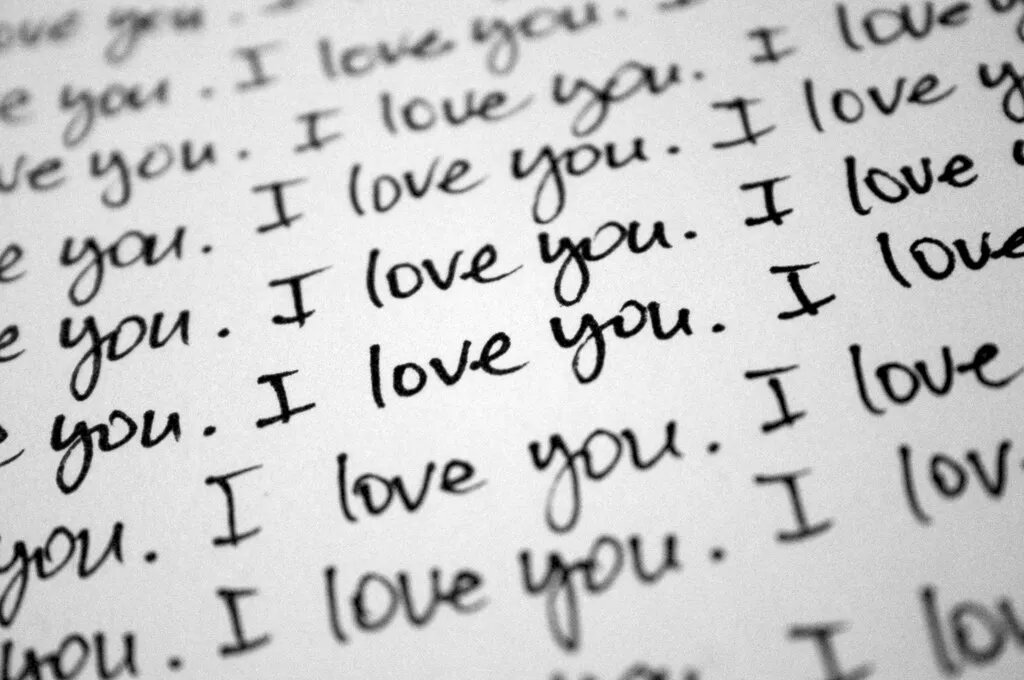 ove you. I
e you. I love you. I
ve you. I love you. I love y
e you. I love you. I love y
e you. I love you. I love y
e you. I love you. I love
you. I love you. I love
you. I love you. I lov
you. I lov